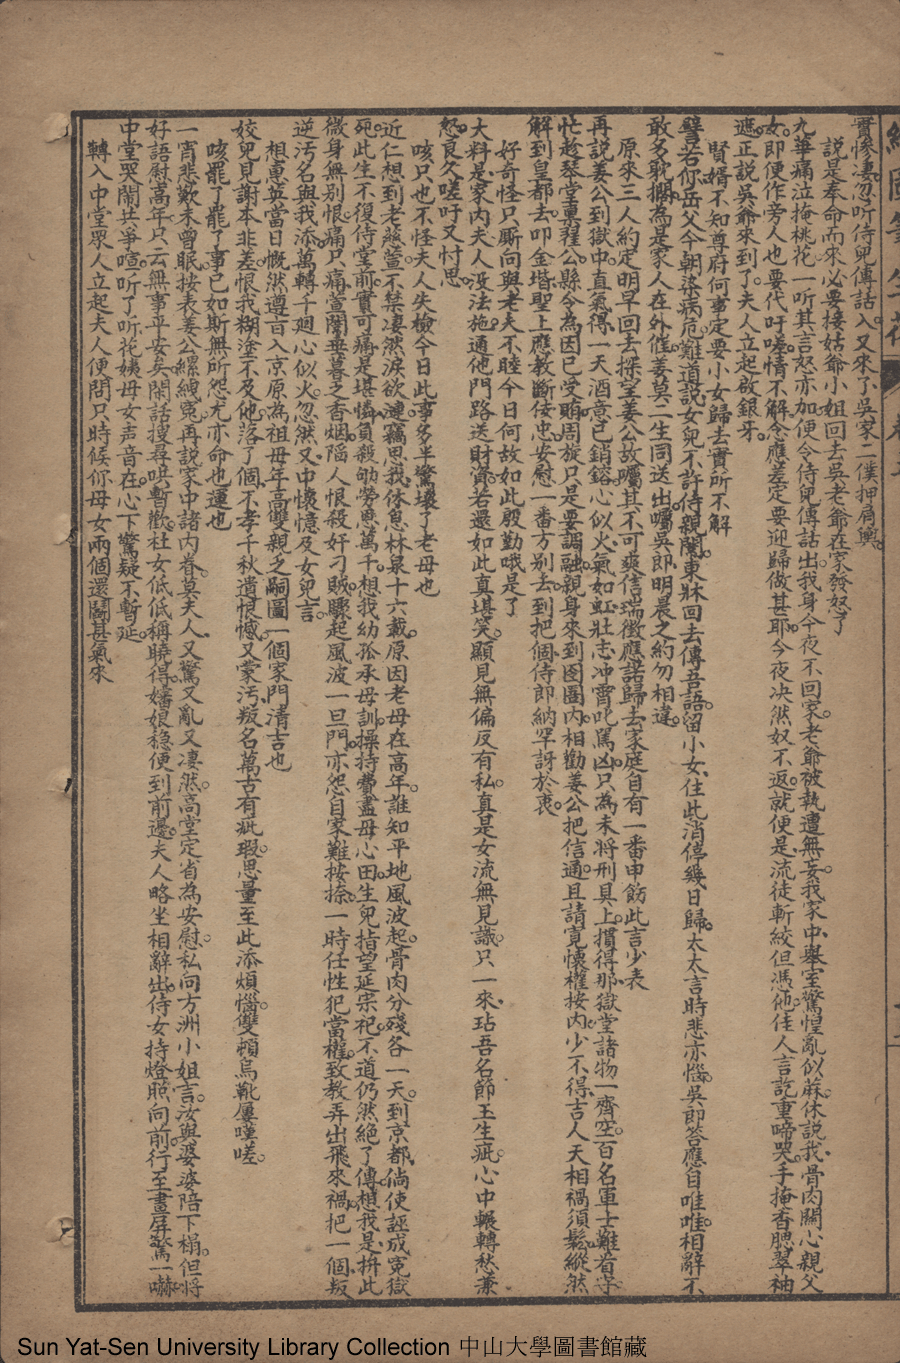 實慘凄。忽听侍兒傳話入。又來了吳家二僕押肩輿。
說是奉命而來必要接姑爺小姐回去吳老爺在家發怒了
九華痛泣掩桃花。一听其言怒亦加。便令侍兒傳話出。我身今夜不回家。老爺被執遭無妄。我家中舉室驚惶亂似蔴。休説我骨肉關心親父
女。即便作旁人也要代吁嗟。情不解。念應差。定要迎歸做甚耶。今夜决然奴不返。就便是流徒斬絞但憑他。佳人言訖重啼哭。手掩香腮翠袖
遮。正説吳爺來到了。夫人立起啟銀牙。
賢婿不知尊府何事定要小女歸去實所不解
譬若你岳父今朝落病危。難道説女兒不許侍親闈。東牀回去傳吾語。留小女住此消停幾日歸。太太言時悲亦惱。吳即答應自唯唯。相辭不
敢多躭擱。為是家人在外催。姜莫二生同送出。囑吳即明晨之約勿相違。
原來三人約定明早回去探望姜公故囑其不可爽信瑞徵應諾歸去家庭自有一番申飭此言少表
再説姜公到獄中。直氣得一天酒意已銷鎔。心似火。氣如虹。壯志冲霄叱罵凶。只為未將刑具上。摜得那獄堂諸物一齊空。百名軍士難看守
忙趁琴堂稟穽公。縣令為因已受賄。周旋只是要調融。親身來到囹圄內。相勸姜公把信通。且請寬懷權按內。少不得吉人天相禍須鬆。縱然
解到皇都去。叩金堦聖上應教斷佞忠。安慰一番方別去。到把個侍即納罕訝於衷。
好奇怪只厮向與老夫不睦今日何故如此殷勤哦是了
大料是家內夫人没法施。通他門路送財資。若還如此真堪笑。顯見無偏反有私。真是女流無見識。只一來玷吾名節玉生疵。心中輾轉愁兼
怒。良久嗟吁又忖思
咳只也不怪夫人失檢今日此事多半驚壞了老母也
近仁想到老慈萱。不禁凄然淚欲漣。竊思我休息林泉十六載。原因老母在高年。誰知平地風波起。骨肉分殘各一天。到京都倘使誣成冤獄
死。此生不復侍堂前。實可痛。是堪憐。負殺劬勞恩萬千。想我幼孤承母訓。操持費盡母心田。生兒指望延宗祀。不道仍然絕了傳。想我是拚此
微身無別恨。痛只痛萱闈垂暮之香烟。陷人恨殺奸刁賊。驟起風波一旦間。亦怨自家難按捺。一時任性犯當權。致教弄出飛來禍。把一個叛
逆汚名與我添。萬轉千廻心似火。忽然又中懷憶及女兒言。
相憲英當日慨然遵旨入京原為祖母年高雙親乏嗣圖一個家門清吉也
姣兒見謝本非差。恨我糊塗不及他。落了個不孝千秋遺恨憾。又蒙汚叛名萬古有疵瑕。思量至此添煩惱。雙頓烏靴屢嘆嗟。
咳罷了罷了事已如斯無所怨尤亦命也運也
一宵悲歎未曾眠。按表姜公縲絏寃。再説家中諸內眷。莫夫人又驚又亂又凄然。高堂定省為安慰。私向方洲小姐言。汝與婆婆陪下榻。但將
好語慰高年。只云無事平安矣。閑話搜尋哄暫歡。杜女低低稱曉得。嬸娘稳便到前邊。夫人略坐相辭出。侍女持燈照向前。行至畫屏驚一嚇
中堂哭鬧共爭喧。听了听花姨母女声音在。心下驚疑不暫延。
轉入中堂眾人立起夫人便問只時候你母女兩個還鬪甚氣來
Sun Yat-Sen University Library Collection 中山大學圖書館藏